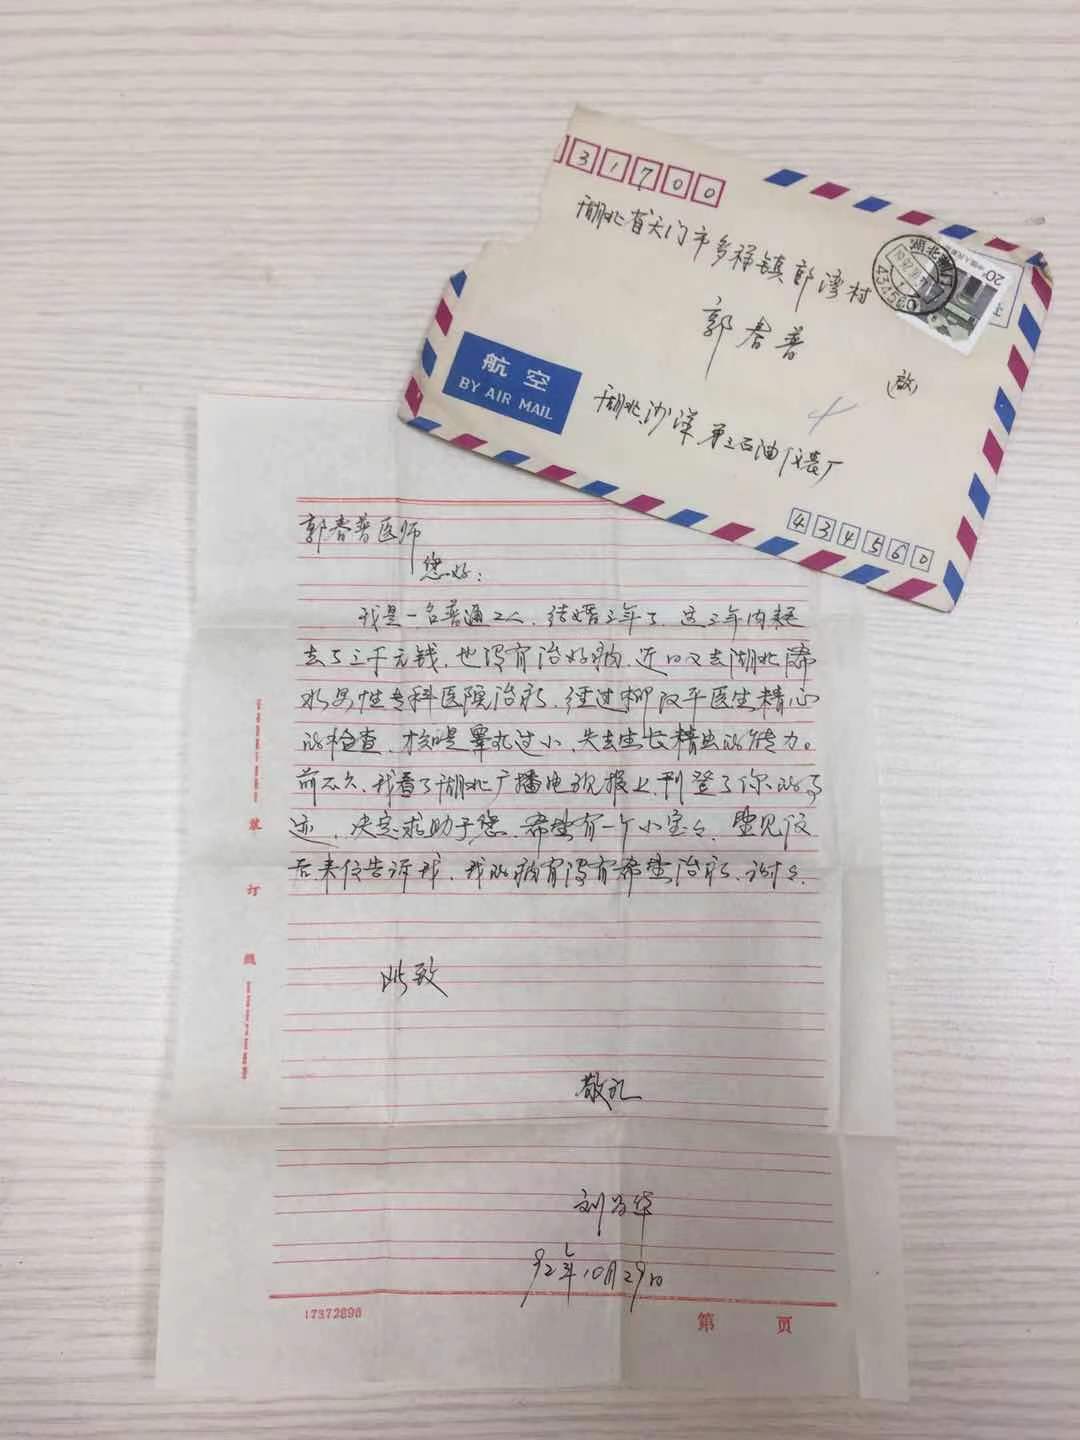 31700
湖北省天门市多祥镇郎湾村
郭春普
(启)
航空
BY AIR MAIL
湖北沙洋第三石油仪表厂
434560
20
郭春普医师
您好:
我是一名普通工人,结婚三年了,这三年内耗
去了三千元钱,也没有治好病,近日又去湖北浠
水男性专科医院治疗,经过柳汉平医生精心
的检查,核是睾丸过小,失去生长精虫的能力。
前不久,我看了湖北广播电视报上,刊登了你的事
迹,决定求助于您,希望有一个小宝々,望见信
后来信告诉我,我的病有没有希望治疗,谢々.
此致
敬礼
刘
92年10月29日
装
订
线
17372890
第 页